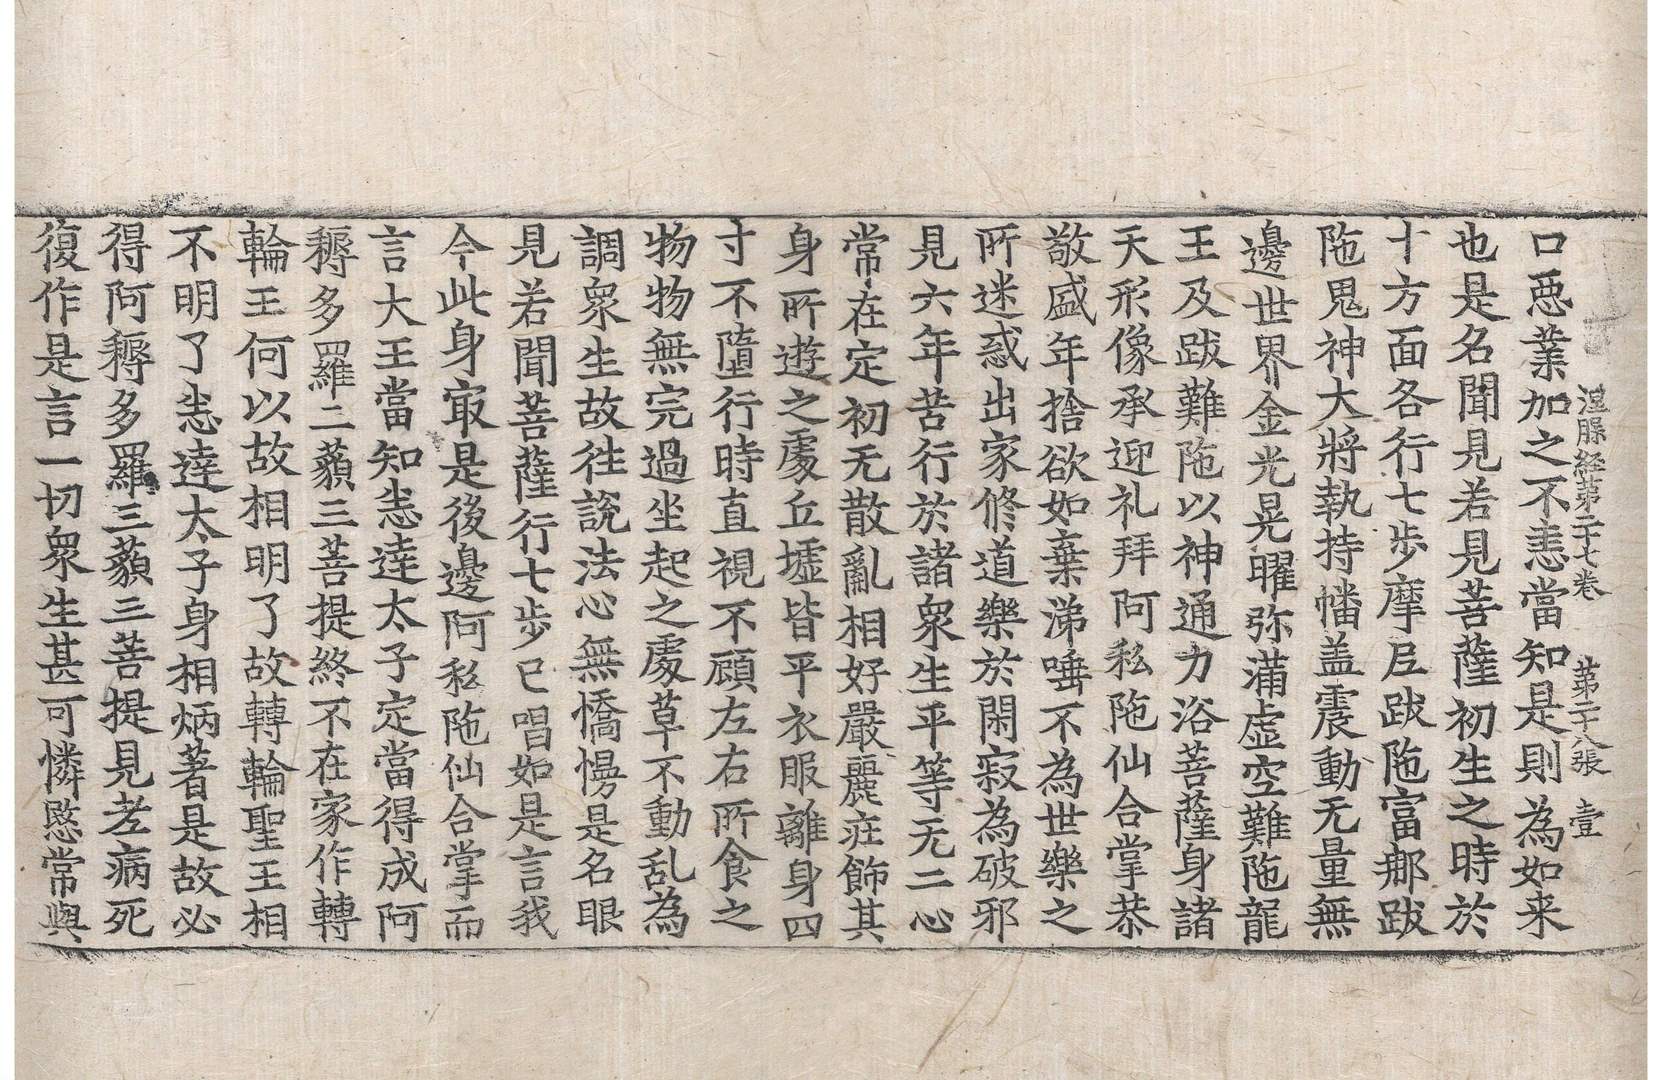 涅槃経第二十七卷 第二十八張 壹
口惡業加之不恚當知是則為如来
也是名聞見若見菩薩初生之時於
十方面各行七步摩𡰱跋陁富𨚗跋
陁鬼神大將執持幡盖震動无量無
邊世界金光晃曜弥滿虚空難陁龍
王及跋難陁以神通力浴菩薩身諸
天形像承迎礼拜阿私陁仙合掌恭
敬盛年捨欲如棄涕唾不為世樂之
所迷惑出家修道樂於閑寂為破邪
見六年苦行於諸衆生平等无二心
常在定初无散亂相好嚴麗庄飾其
身所遊之䖏丘墟皆平衣服離身四
寸不墮行時直視不顧左右所食之
物物無完過坐起之䖏草不動乱為
調衆生故往說法心無憍慢是名眼
見若聞菩薩行七步已唱如是言我
今此身㝡是後邊阿私陁仙合掌而
言大王當知悉達太子定當得成阿
耨多羅二藐三菩提終不在家作轉
輪王何以故相明了故轉輪聖王相
不明了悉達太子身相炳著是故必
得阿耨多羅三藐三菩提見老病死
復作是言一切衆生甚可憐愍常與